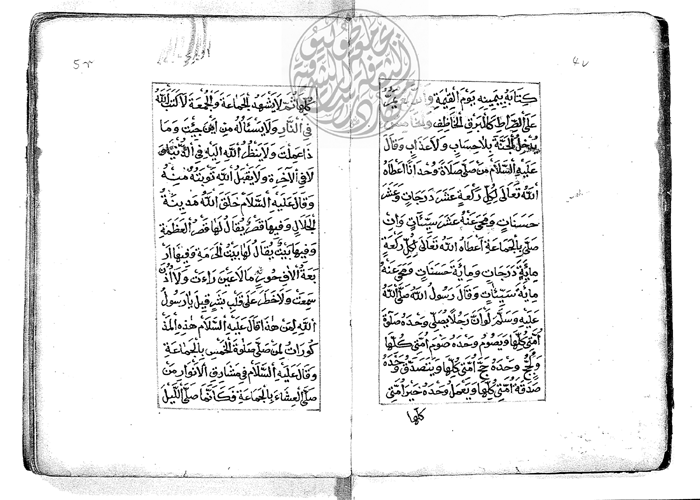 كتابه بيمينه يوم القيمة
على الصراط كالبرق الخاطف
يدخل الجنة بلا حساب ولا عذاب وقال
عليه السلام من صلى صلاة وحدانا اعطاه
الله تعالى لكل ركعة عشر درجات وعشر
حسنات ومحى عنه عشر سيئات وان
صلى بالجماعة اعطاه الله تعالى لكل ركعة
ماية درجات وماية حسنات ومحى عنه
ماية سيئات وقال رسول الله صلى الله
عليه وسلم لو ان رجلا يصلى وحده صلوة
امتى كلها ويصوم وحده صوم امتى كلها
ويحج وحده حج امتى كلها ويتصدق وحده
صدقة امتى كلها ويعمل وحده خير امتى
كلها
كلها ثم لا يشهد الجماعة والجمعة لا كبه الله
فى النار ولا يسئاله من اين جيت وما
ذا عملت ولا ينظر الله اليه فى الدنيا
لا فى الاخرة ولا يقبل الله توبته منه
وقال عليه السلام خلق الله مدينة
الجلال وفيها قصر يقال لها قصر العظمة
وفيها بيت يقال لها بيت الرحمة وفيها ار
بعة الاف ما لا عين راءت ولا اذن
سمعت ولا خطر على قلب بشر قيل يا رسول
الله لمن هذا قال عليه السلام هذه المذ
كورات لمن صلى صلوة الخمس بالجماعة
وقال عليه السلام فى مشارق الانوار من
صلى العشاء بالجماعة فكانما صلى الليل